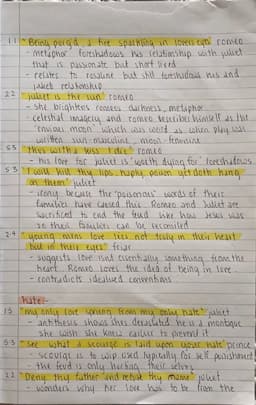 1.1 "Being purg'd, a fire sparkling in lovers eyes" romeo
- metaphor foreshadows his relationship with juliet
that is passionate but short lived
- relates to rosaline but still foreshadows his and
juliet relationship
2.2 "juliet is the sun" romeo
- she brightens romeos darkness, metaphor
- celestial imagery and romeo describes himself as the
'envious moon' which was weird as when play was
written sun-masculine, moon-feminine
5.3 "thus with a kiss I die" romeo
- his love for juliet is 'worth dying for' foreshadows
5.3 "I will kiss thy lips, haply poison yet doth hang
on them" juliet
- irony because the 'poisonous' words of their
families have caused this. Romeo and Juliet are
sacrificed to end the feud like how Jesus was
so their families can be reconciled
2.3 "young mens love lies not truly in their heart
but in their eyes" friar
- suggests love isnt essentially something from the
heart. Romeo loves the idea of being in love
- contradicts idealised conventions
hate:-
1.5 "my only love sprung from my only hate" juliet
- antithesis shows shes desolated he is a montague
she wish she knew earlier to prevent it
5.3 "see what a scourge is laid upon your hate" prince
- scourge is to whip used typically for self punishment
- the feud is only hurting their selves
2.2 "Deny thy father and refuse thy name" juliet
- wonders why her love has to be from the